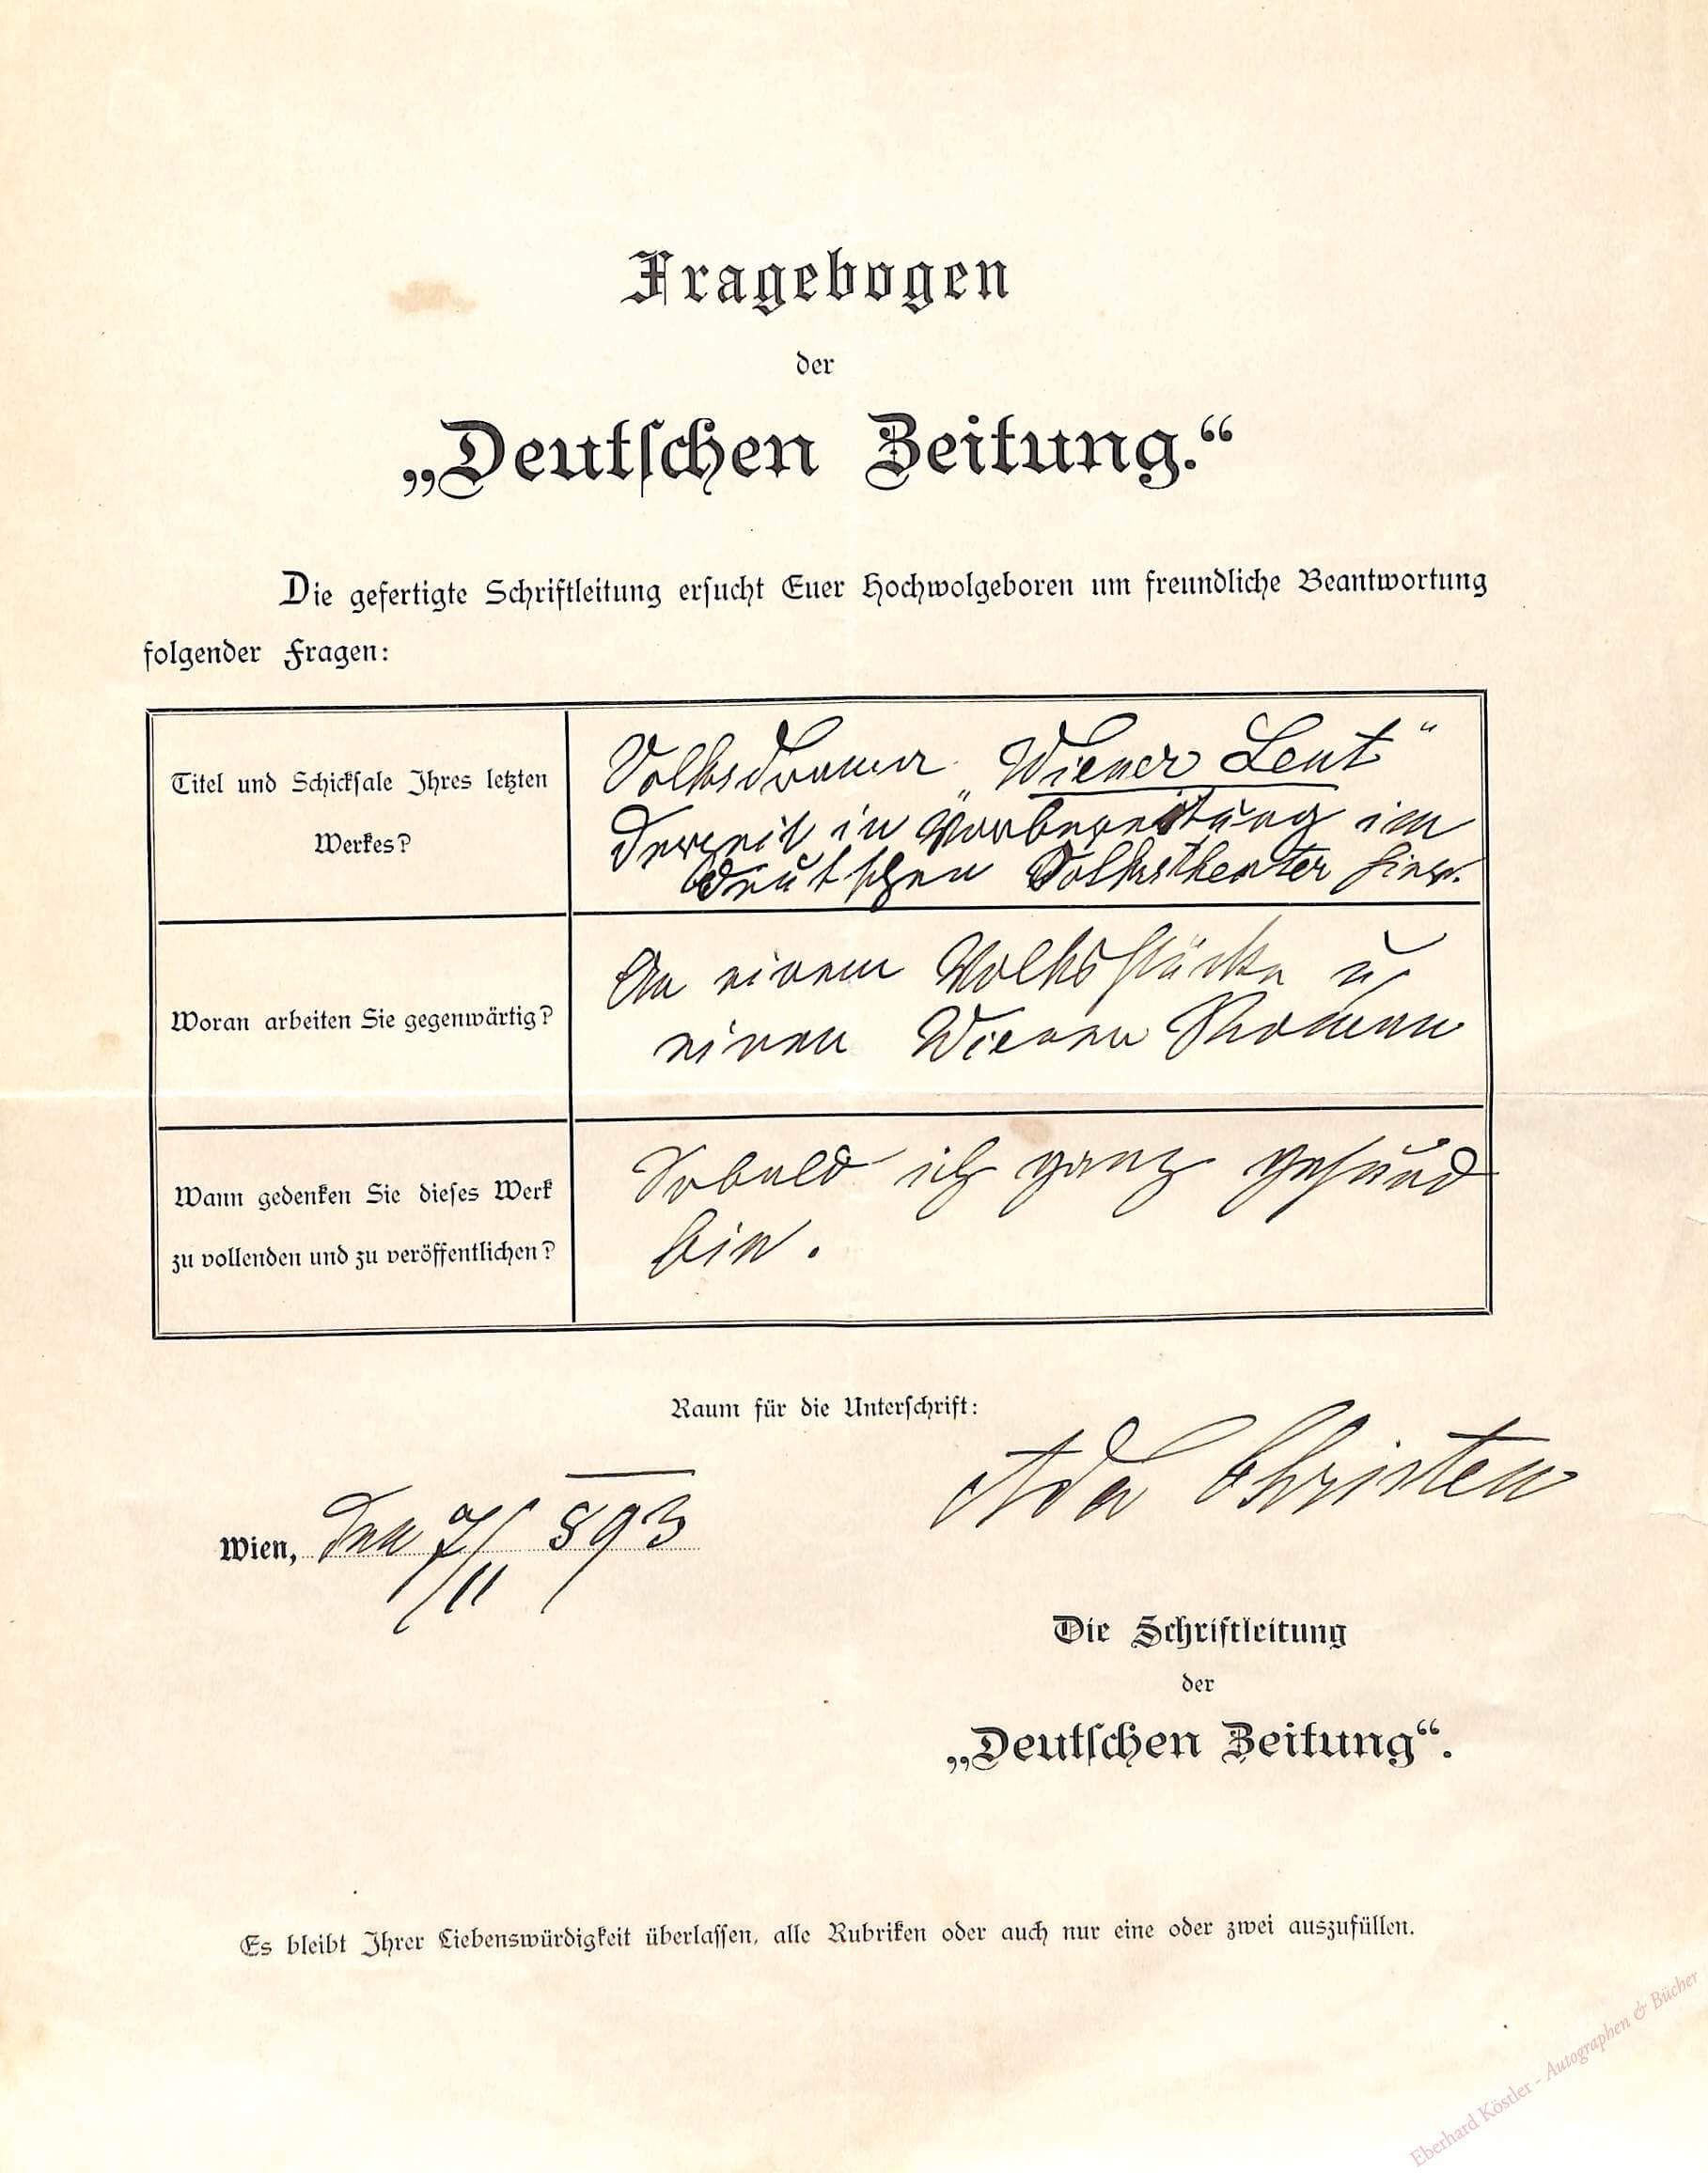 Fragebogen
der
„Deutschen Zeitung.“
Die gefertigte Schriftleitung ersucht Euer Hochwolgeboren um freundliche Beantwortung
folgender Fragen:
Titel und Schicksale Ihres letzten
Werkes?
Volksdrama „Wiener Leut“
derzeit in Vorbereitung im
deutschen Volkstheater hier.
Woran arbeiten Sie gegenwärtig?
An einem Volksstücke u
einen Wiener Roman
Wann gedenken Sie dieses Werk
zu vollenden und zu veröffentlichen?
Sobald ich ganz gesund
bin.
Raum für die Unterschrift:
Ada Christen
Wien, den 7/11 893
Die Schriftleitung
der
„Deutschen Zeitung“.
Es bleibt Ihrer Liebenswürdigkeit überlassen, alle Rubriken oder auch nur eine oder zwei auszufüllen.
Eberhard Köstler - Autographen & Bücher